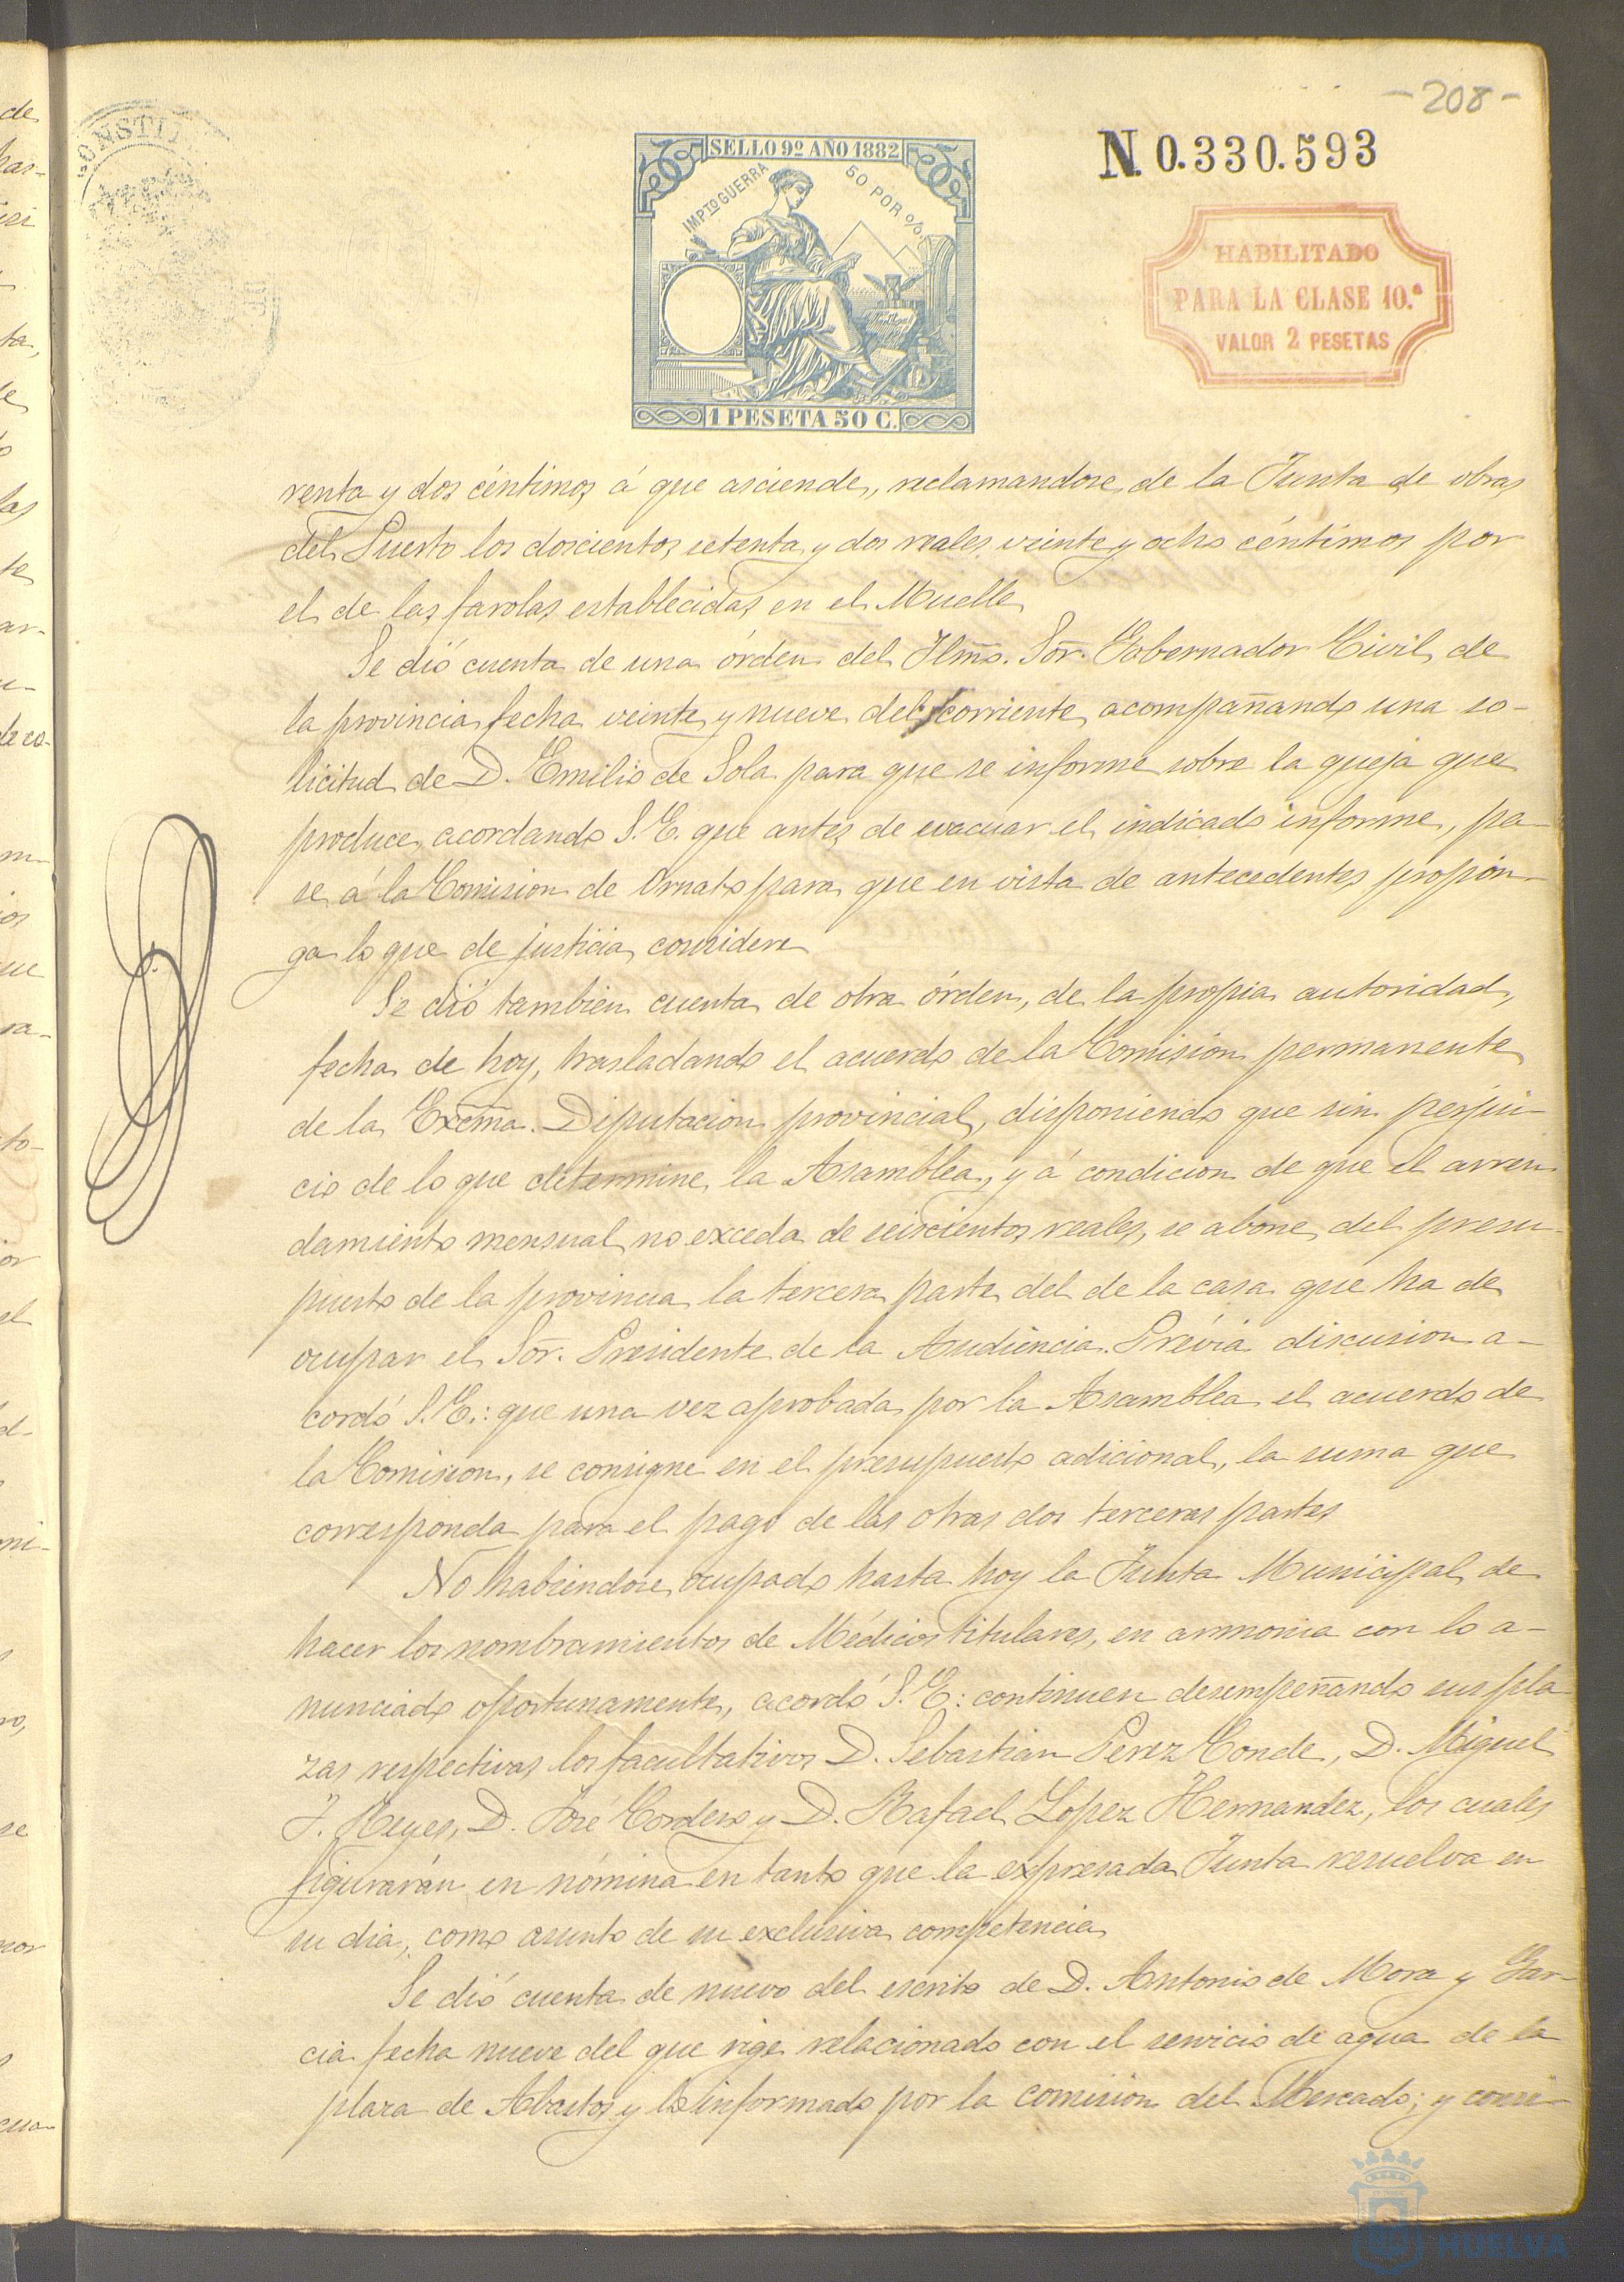 -208-
SELLO 9º AÑO 1882
IMPTO GUERRA 50 POR %
1 PESETA 50 C.
N. 0.330.593
HABILITADO
PARA LA CLASE 10.ª
VALOR 2 PESETAS
CONSTIT
renta y dos céntimos á que asciende, reclamandose de la Junta de obras
del Puerto los doscientos setenta y dos reales veinte y ocho céntimos por
el de las farolas establecidas en el Muelle
Se dió cuenta de una órden del Ilmo. Sor. Gobernador Civil de
la provincia fecha veinte y nueve del corriente acompañando una so-
licitud de D. Emilio de Sola para que se informe sobre la queja que
produce, acordando S.E. que antes de evacuar el indicado informe, pa-
se á la Comision de Ornato para que en vista de antecedentes propon-
ga lo que de justicia considere
Se dió tambien cuenta de otra órden, de la propia autoridad,
fecha de hoy, trasladando el acuerdo de la Comision permanente
de la Excma. Diputacion provincial, disponiendo que sin perjui-
cio de lo que determine la Asamblea, y á condicion de que el arren
damiento mensual no exceda de seiscientos reales, se abone del presu-
puesto de la provincia la tercera parte del de la casa que ha de
ocupar el Sor. Presidente de la Audiencia. Prévia discusion a-
cordó S.E.: que una vez aprobada por la Asamblea el acuerdo de
la Comision, se consigne en el presupuesto adicional, la suma que
corresponda para el pago de las otras dos terceras partes
No habiendose ocupado hasta hoy la Junta Municipal de
hacer los nombramientos de Médicos titulares, en armonia con lo a-
nunciado oportunamente, acordó S.E: continuen desempeñando sus pla
zas respectivas los facultativos D. Sebastian Perez Conde, D. Miguel
J. Reyes, D. José Cordero y D. Rafael Lopez Hernandez, los cuales
figurarán en nómina en tanto que la expresada Junta resuelva en
su dia, como asunto de su exclusiva competencia
Se dió cuenta de nuevo del escrito de D. Antonio de Mora y Gar-
cia fecha nueve del que rige relacionado con el servicio de agua de la
plaza de Abastos y lo informado por la comision del Mercado; y consi-
HUELVA